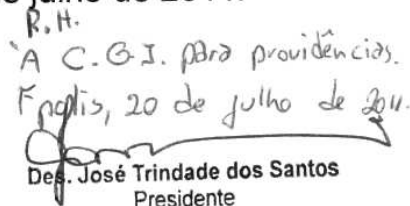 julho de 20
R.H.
À C.G.I. para providências.
Fpolis, 20 de julho de 2011.
Des. José Trindade dos Santos
Presidente